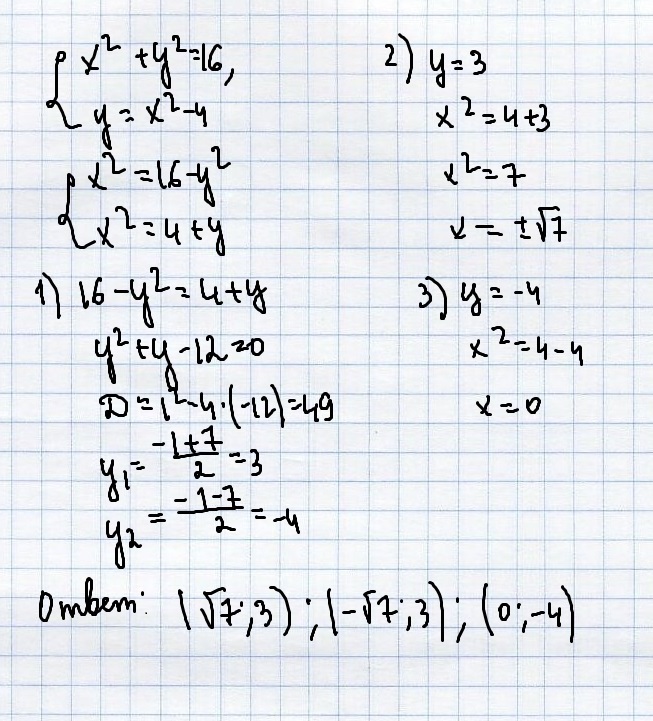 x²+y²=16,
y=x²-4
x²=16-y²
x²=4+y
1) 16-y²=4+y
y²+y-12=0
D=1²-4·(-12)=49
y₁=(-1+7)/2=3
y₂=(-1-7)/2=-4
2) y=3
x²=4+3
x²=7
x=±√7
3) y=-4
x²=4-4
x=0
Ответ: (√7;3); (-√7;3); (0;-4)